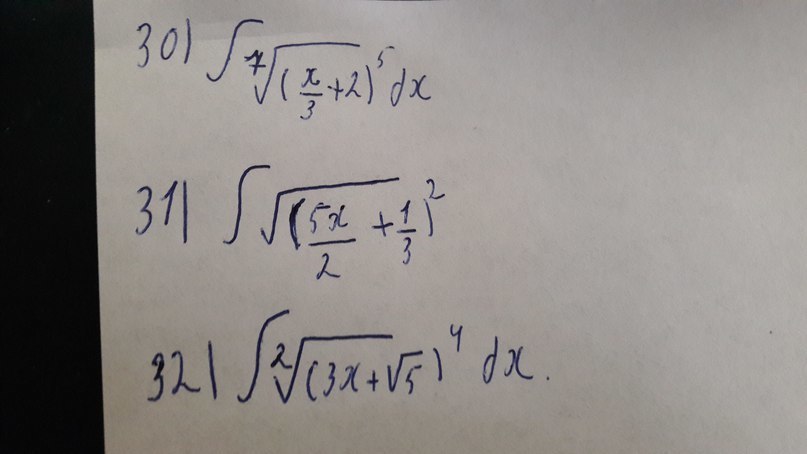 30) ∫ ⁷√(x/3 + 2)⁵ dx
31) ∫ √(5x/2 + 1/3)²
32) ∫ ²√(3x + √5)⁴ dx.